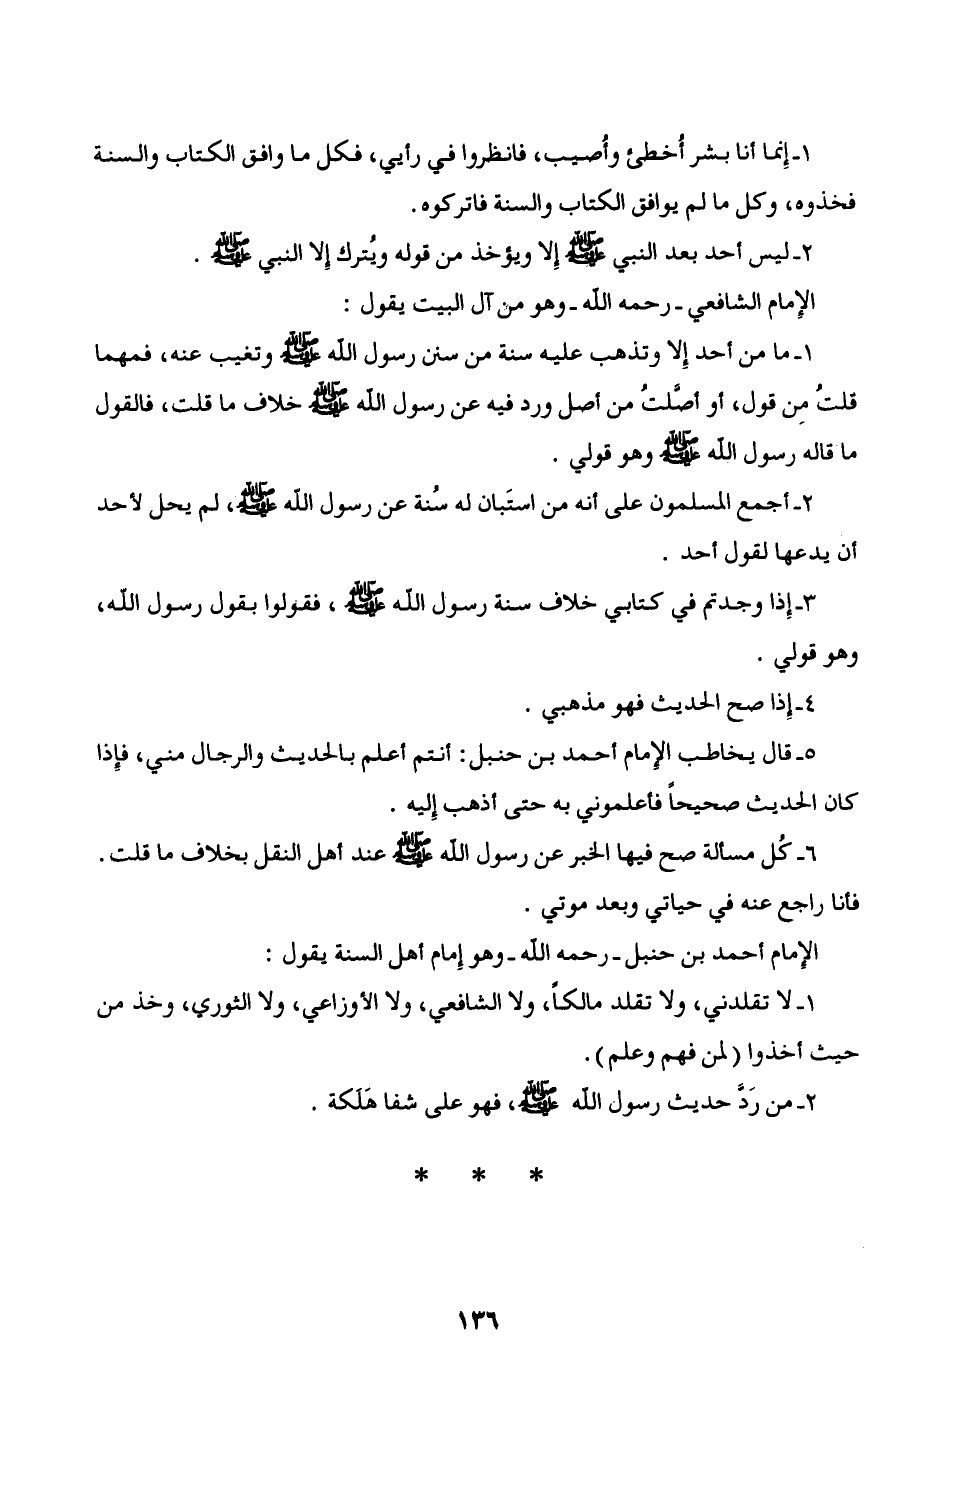 ١ـ إنما أنا بشر أُخطئ وأُصيب، فانظروا في رأيي، فكل ما وافق الكتاب والسنة
فخذوه، وكل ما لم يوافق الكتاب والسنة فاتركوه.
٢ـ ليس أحد بعد النبي ﷺ إلا ويؤخذ من قوله ويُترك إلا النبي ﷺ .
الإمام الشافعي ـ رحمه اللّه ـ وهو من آل البيت يقول :
١ـ ما من أحد إلا وتذهب عليه سنة من سنن رسول اللّه ﷺ وتغيب عنه، فمهما
قلتُ مِن قول، أو أصَّلتُ من أصل ورد فيه عن رسول اللّه ﷺ خلاف ما قلت، فالقول
ما قاله رسول اللّه ﷺ وهو قولي .
٢ـ أجمع المسلمون على أنه من استَبان له سُنة عن رسول اللّه ﷺ، لم يحل لأحد
أن يدعها لقول أحد .
٣ـ إذا وجدتم في كتابي خلاف سنة رسول اللّه ﷺ ، فقولوا بقول رسول اللّه،
وهو قولي .
٤ـ إذا صح الحديث فهو مذهبي .
٥ـ قال يخاطب الإمام أحمد بن حنبل : أنتم أعلم بالحديث والرجال مني، فإذا
كان الحديث صحيحاً فأعلموني به حتى أذهب إليه .
٦ـ كُل مسألة صح فيها الخبر عن رسول اللّه ﷺ عند أهل النقل بخلاف ما قلت.
فأنا راجع عنه في حياتي وبعد موتي .
الإمام أحمد بن حنبل ـ رحمه اللّه ـ وهو إمام أهل السنة يقول :
١ـ لا تقلدني، ولا تقلد مالكاً، ولا الشافعي، ولا الأوزاعي، ولا الثوري، وخذ من
حيث أخذوا (لمن فهم وعلم).
٢ـ من رَدَّ حديث رسول اللّه ﷺ، فهو على شفا هَلَكة .
* * *
١٣٦